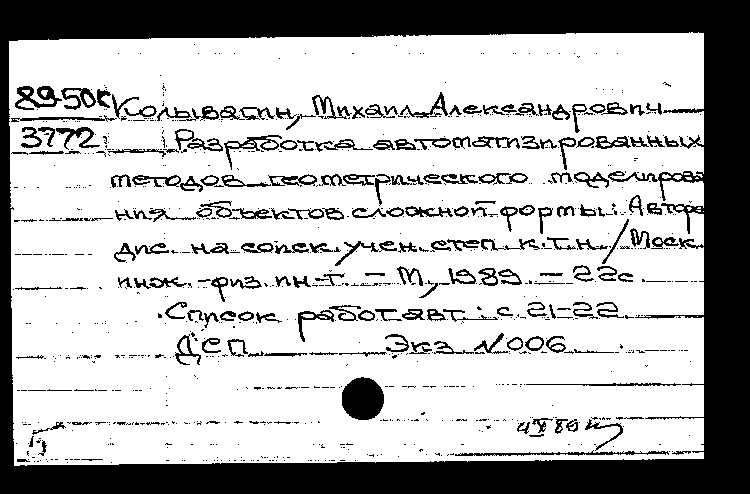 89-50к Колывагин, Михаил Александрович
3772 Разработка автоматизированных
методов геометрического моделирова
ния объектов сложной формы: Авторе
дис. на соиск. учен. степ. к.т.н. / Моск.
инж.-физ. ин-т. – М, 1989. – 22с.
Список работ авт.: с. 21-22
ДСП Экз. №006